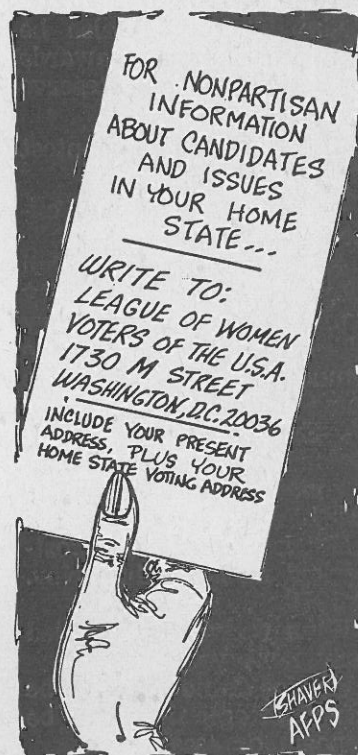 FOR NONPARTISAN
INFORMATION
ABOUT CANDIDATES
AND ISSUES
IN YOUR HOME
STATE...
WRITE TO:
LEAGUE OF WOMEN
VOTERS OF THE U.S.A.
1730 M STREET
WASHINGTON, D.C. 20036
INCLUDE YOUR PRESENT
ADDRESS, PLUS YOUR
HOME STATE VOTING ADDRESS
SHAVER
AFPS